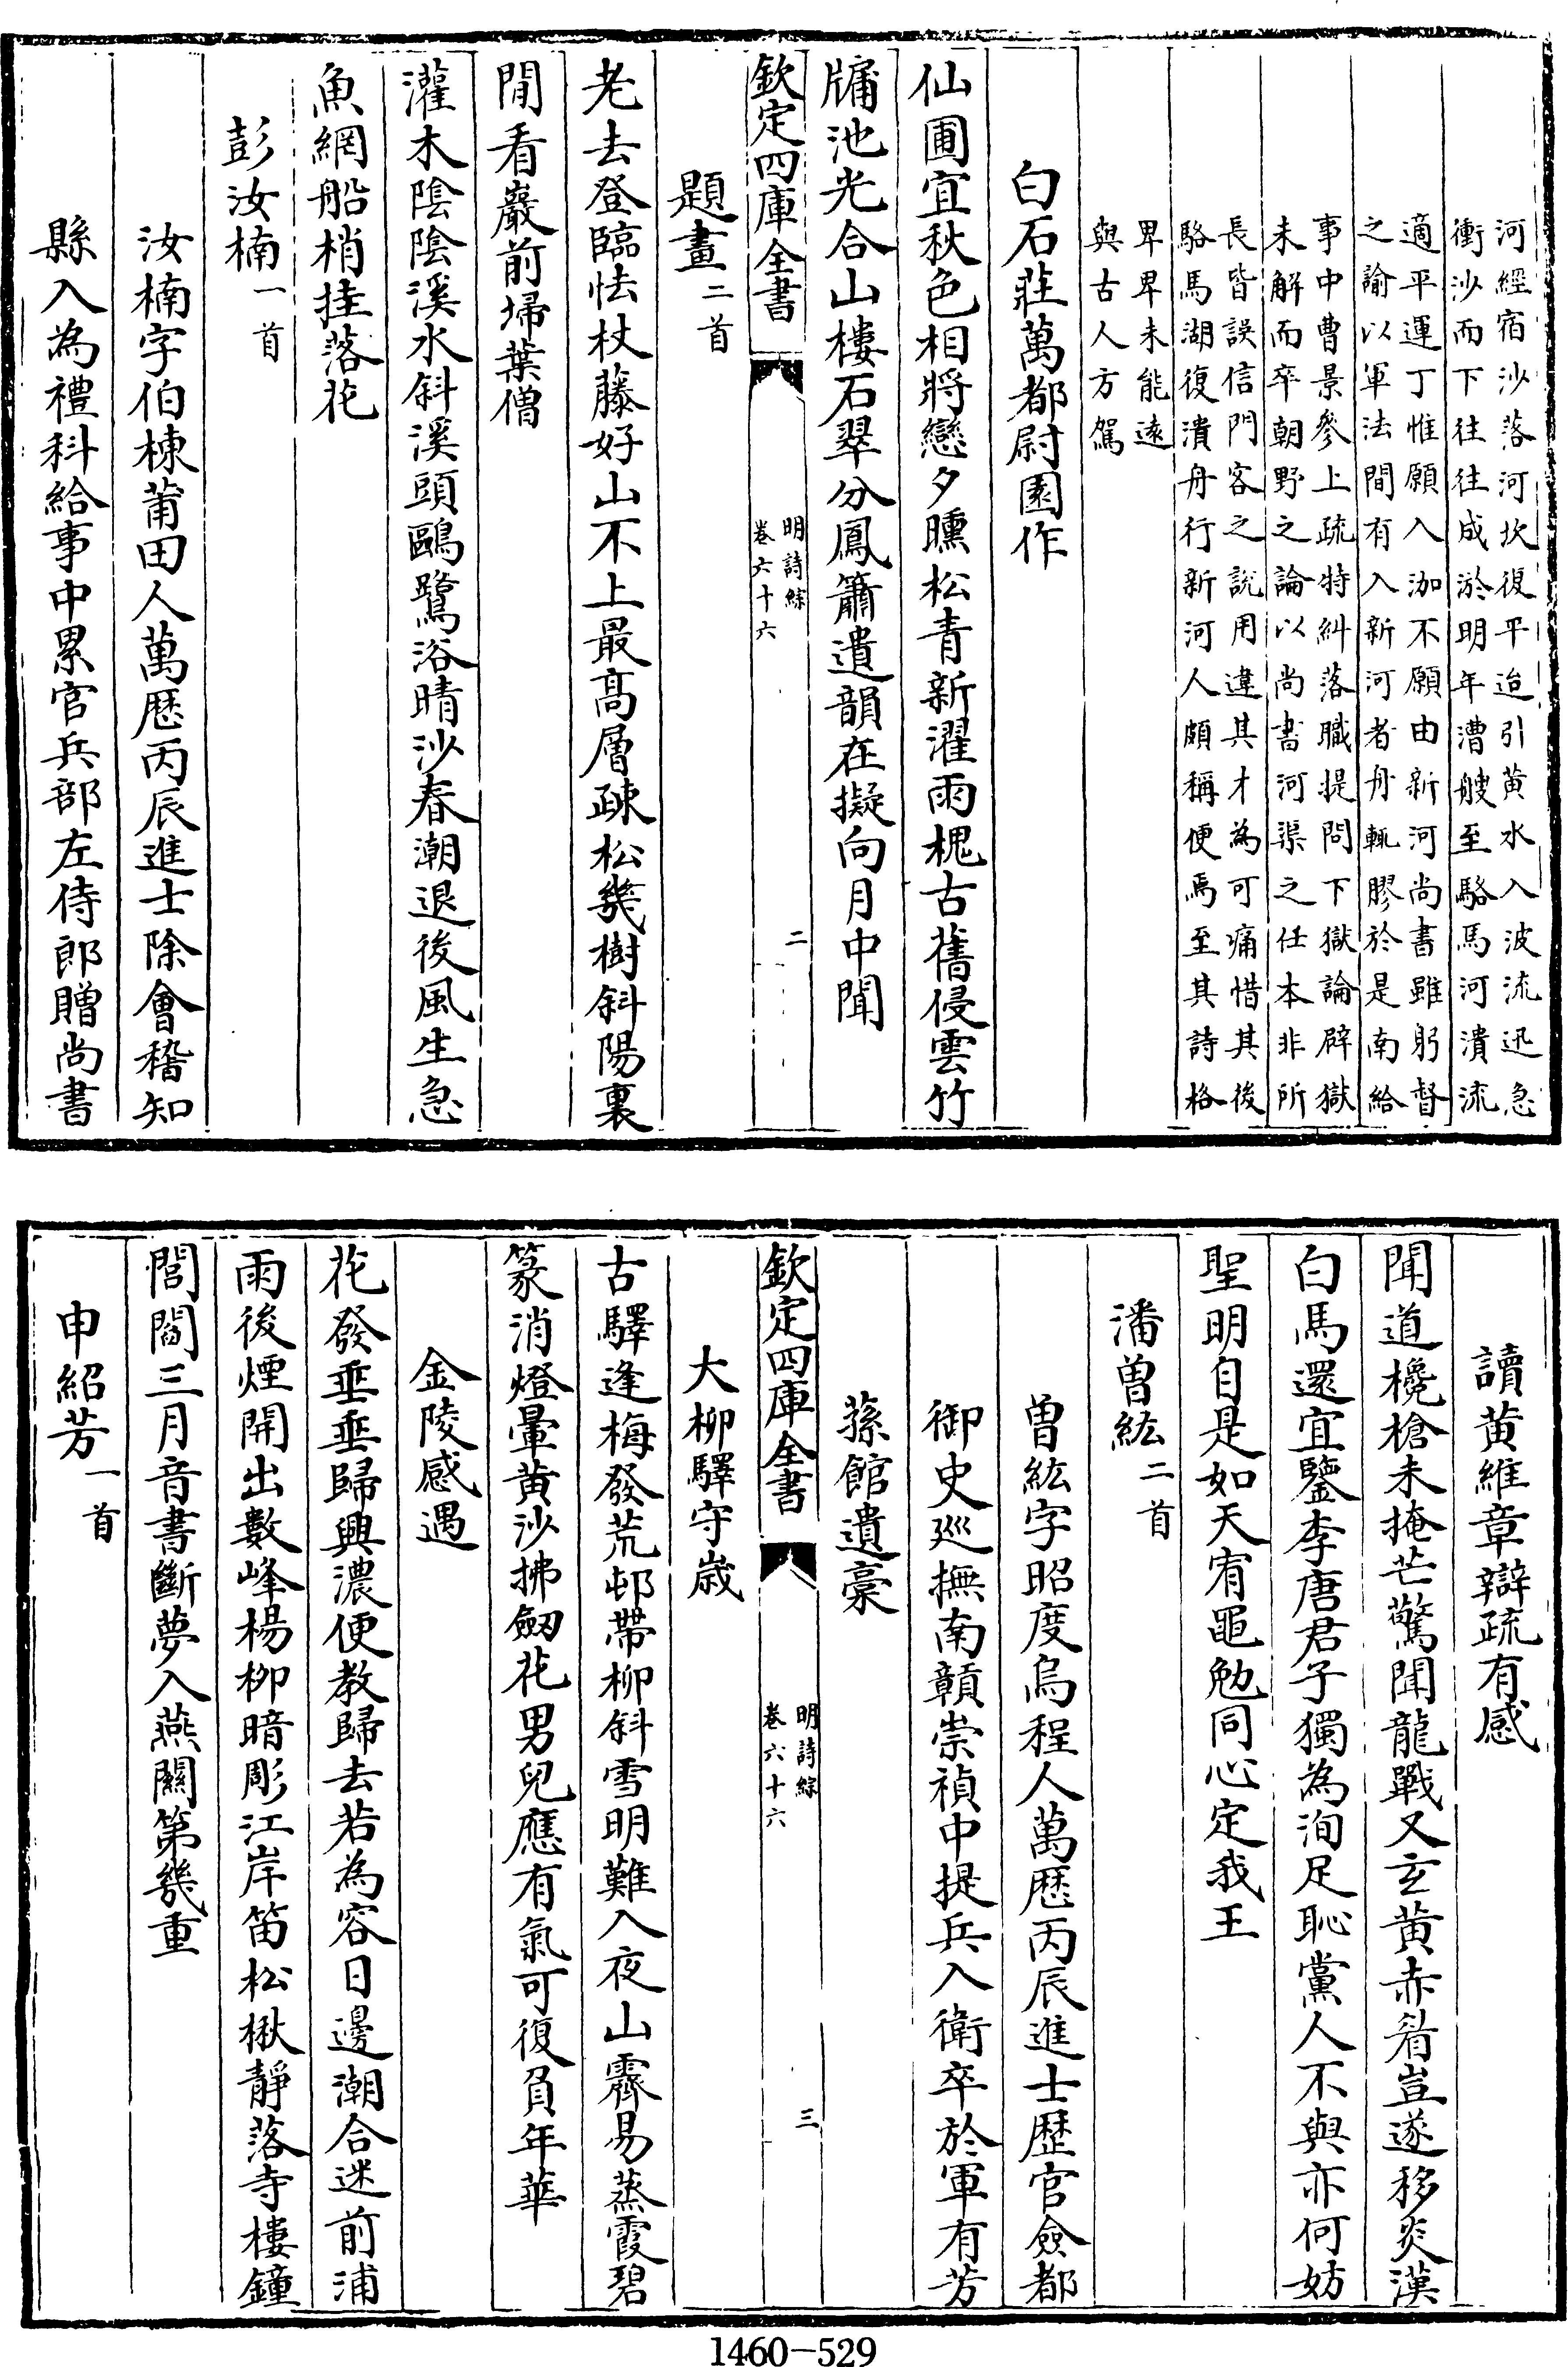 河經宿沙落河坎復平迨引黄水入波流迅急
衝沙而下往往成淤明年漕艘至駱馬河潰流
適平運丁惟願入泇不願由新河尚書雖躬督
之諭以軍法間有入新河者舟輒膠於是南給
事中曹景參上疏特糾落職提問下獄論辟獄
未解而卒朝野之論以尚書河渠之任本非所
長皆誤信門客之說用違其才為可痛惜其後
駱馬湖復潰舟行新河人頗稱便焉至其詩格
卑卑未能遠
與古人方駕
白石莊萬都尉園作
仙圃宜秋色相將戀夕曛松青新濯雨槐古舊侵雲竹
牖池光合山樓石翠分鳳簫遺韻在擬向月中聞
欽定四庫全書
明詩綜
卷六十六
二
題畫二首
老去登臨怯杖藤好山不上最髙層疎松幾樹斜陽裏
閒看巖前埽葉僧
灌木陰陰溪水斜溪頭鷗鷺浴晴沙春潮退後風生急
魚網船梢挂落花
彭汝楠一首
汝楠字伯棟莆田人萬歴丙辰進士除會稽知
縣入為禮科給事中累官兵部左侍郎贈尚書
讀黄維章辯疏有感
聞道欃槍未掩芒驚聞龍戰又玄黄赤眉豈遂移炎漢
白馬還宜鑒李唐君子獨為洵足恥黨人不與亦何妨
聖明自是如天宥黽勉同心定我王
潘曽紘二首
曽紘字昭度烏程人萬歴丙辰進士歴官僉都
御史廵撫南贛崇禎中提兵入衛卒於軍有芳
蓀館遺稾
欽定四庫全書
明詩綜
卷六十六
三
大柳驛守歳
古驛逢梅發荒邨帶柳斜雪明難入夜山霽易蒸霞碧
篆消燈暈黄沙拂劒花男兒應有氣可復負年華
金陵感遇
花發垂垂歸興濃便教歸去若為容日邊潮合迷前浦
雨後煙開出數峰楊柳暗彫江岸笛松楸靜落寺樓鐘
閶闔三月音書斷夢入燕關第幾重
申紹芳一首
1460-529